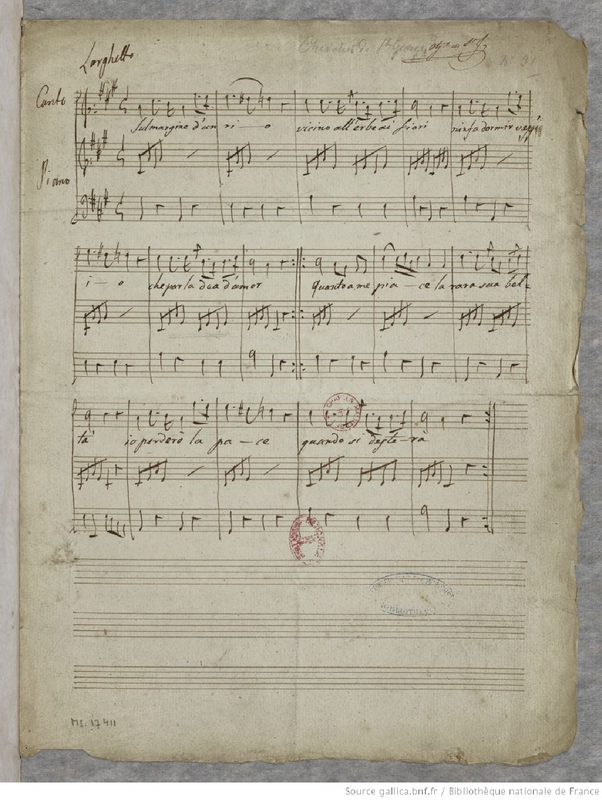 Larghetto
Chevalier de St George
N° 9
Canto
Sul margine d'un ri-o vicino all'erbe ai fiori ninfa dormir
Piano
i-o che par la dea d'amor quanto a me pia-ce la rara sua bel-
tà io perdero la pa-ce quando si deste-rà
MS. 17411
Source gallica.bnf.fr / Bibliothèque nationale de France